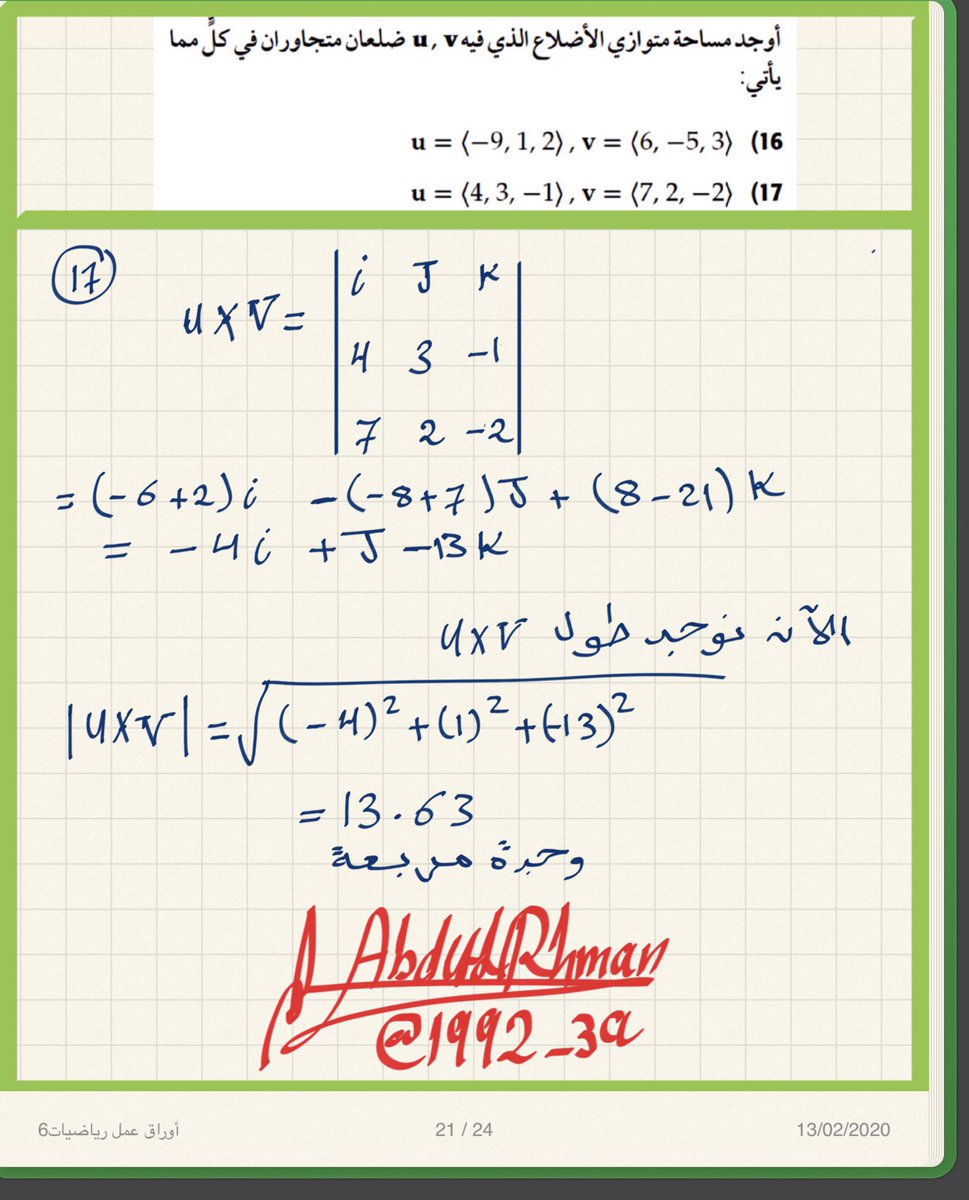 أوجد مساحة متوازي الأضلاع الذي فيه u , v ضلعان متجاوران في كلٍّ مما
يأتي:
u = ⟨−9, 1, 2⟩ , v = ⟨6, −5, 3⟩ (16
u = ⟨4, 3, −1⟩ , v = ⟨7, 2, −2⟩ (17
17
i J K
u x v =
4 3 -1
7 2 -2
= (-6+2) i -(-8+7) J + (8-21) K
= -4i + J -13K
الآن نوجد طول uxv
|uxv| = √(-4)² + (1)² + (-13)²
= 13.63
وحدة مربعة
AbdulRhman
@1992_3a
أوراق عمل رياضيات6
21 / 24
13/02/2020